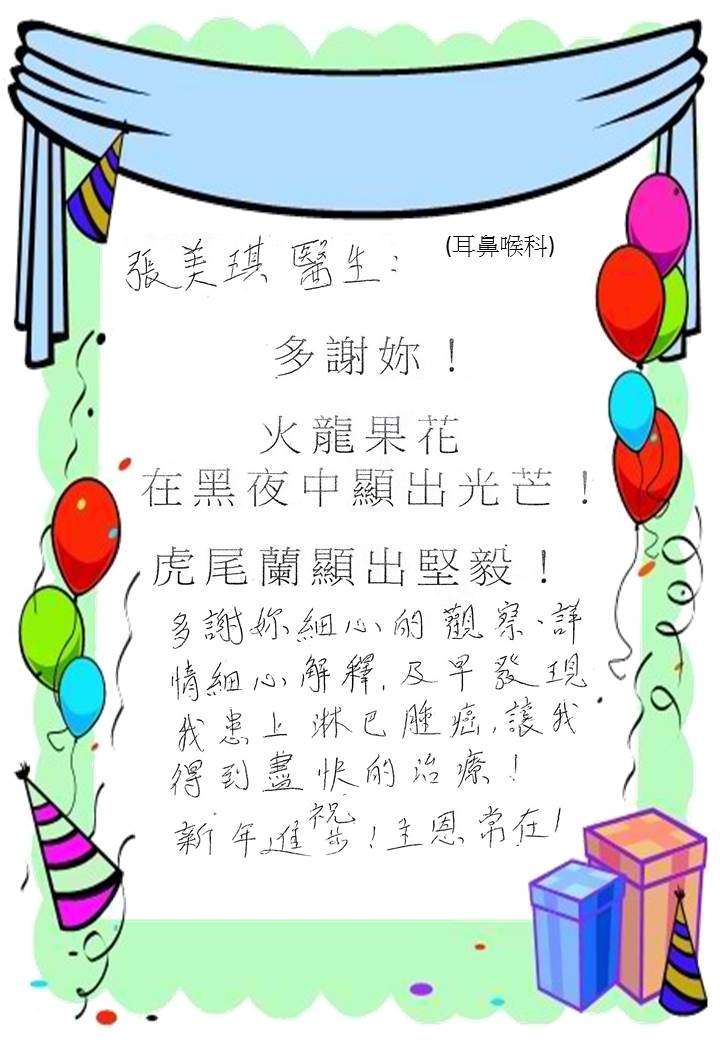 張美琪醫生： (耳鼻喉科)
多謝妳！
火龍果花
在黑夜中顯出光芒！
虎尾蘭顯出堅毅！
多謝妳細心的觀察、詳
情細心解釋，及早發現
我患上淋巴腫癌，讓我
得到盡快的治療！
祝
新年進步！主恩常在！